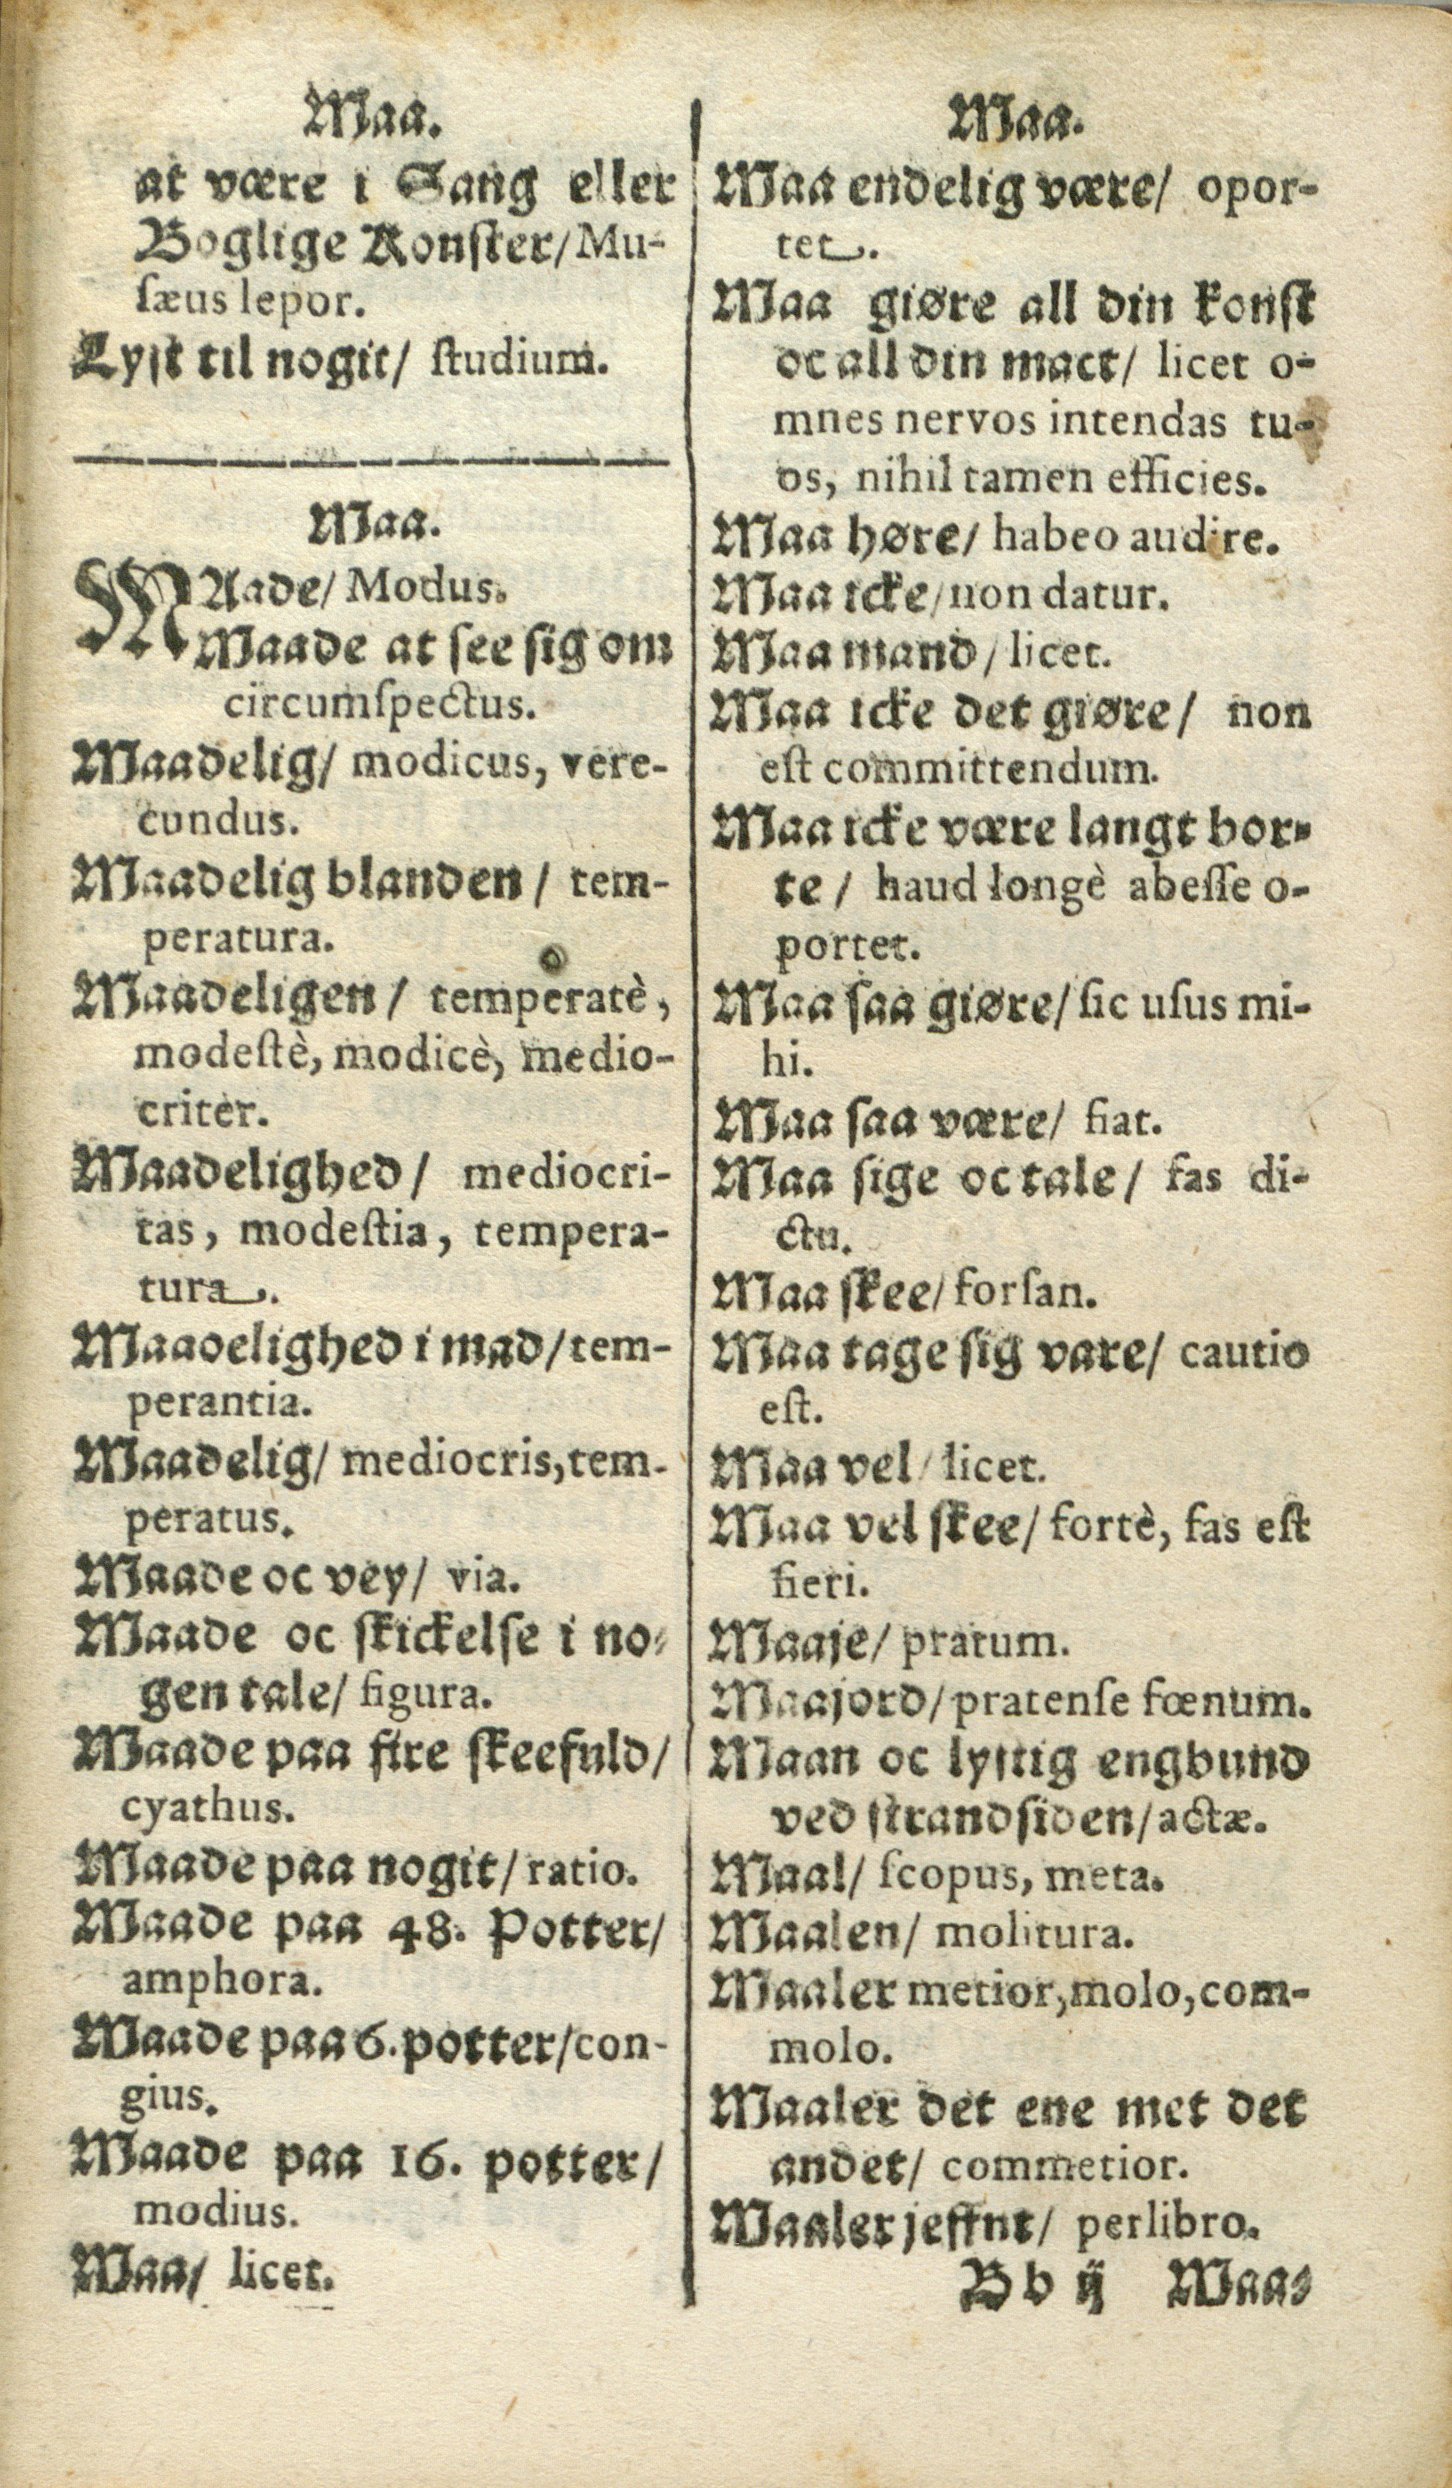 Maa.
at være i Sang eller
Boglige Konster/ Mu-
ſæus lepor.
Lyst til nogit/ ſtudium.
Maa.
MAade/ Modus.
Maade at ſee ſig om
circumſpectus.
Maadelig/ modicus, vere-
cundus.
Maadelig blanden/ tem-
peratura.
Maadeligen/ temperatè,
modeſtè, modicè, medio-
criter.
Maadelighed/ mediocri-
tas, modeſtia, tempera-
tura.
Maadelighed i mad/ tem-
perantia.
Maadelig/ mediocris, tem-
peratus.
Maade oc vey/ via.
Maade oc ſkickelſe i no-
gen tale/ figura.
Maade paa fire ſkeefuld/
cyathus.
Maade paa nogit/ ratio.
Maade paa 48. Potter/
amphora.
Maade paa 6. potter/ con-
gius.
Maade paa 16. potter/
modius.
Maa/ licet.
Maa.
Maa endelig være/ opor-
tet.
Maa giøre all din konſt
oc all din mact/ licet o-
mnes nervos intendas tu-
os, nihil tamen efficies.
Maa høre/ habeo audire.
Maa icke/ non datur.
Maa mand/ licet.
Maa icke det giøre/ non
eſt committendum.
Maa icke være langt bor-
te/ haud longè abeſſe o-
portet.
Maa ſaa giøre/ ſic uſus mi-
hi.
Maa ſaa være/ fiat.
Maa ſige oc tale/ fas di-
ctu.
Maa ſkee/ forſan.
Maa tage ſig vare/ cautio
eſt.
Maa vel/ licet.
Maa vel ſkee/ fortè, fas eſt
fieri.
Maaje/ pratum.
Maajord/ pratenſe fœnum.
Maan oc lyſtig engbund
ved ſtrandſiden/ actæ.
Maal/ ſcopus, meta.
Maalen/ molitura.
Maaler metior, molo, com-
molo.
Maaler det ene met det
andet/ commetior.
Maaler jeffnt/ perlibro.
Bb ij Maa-